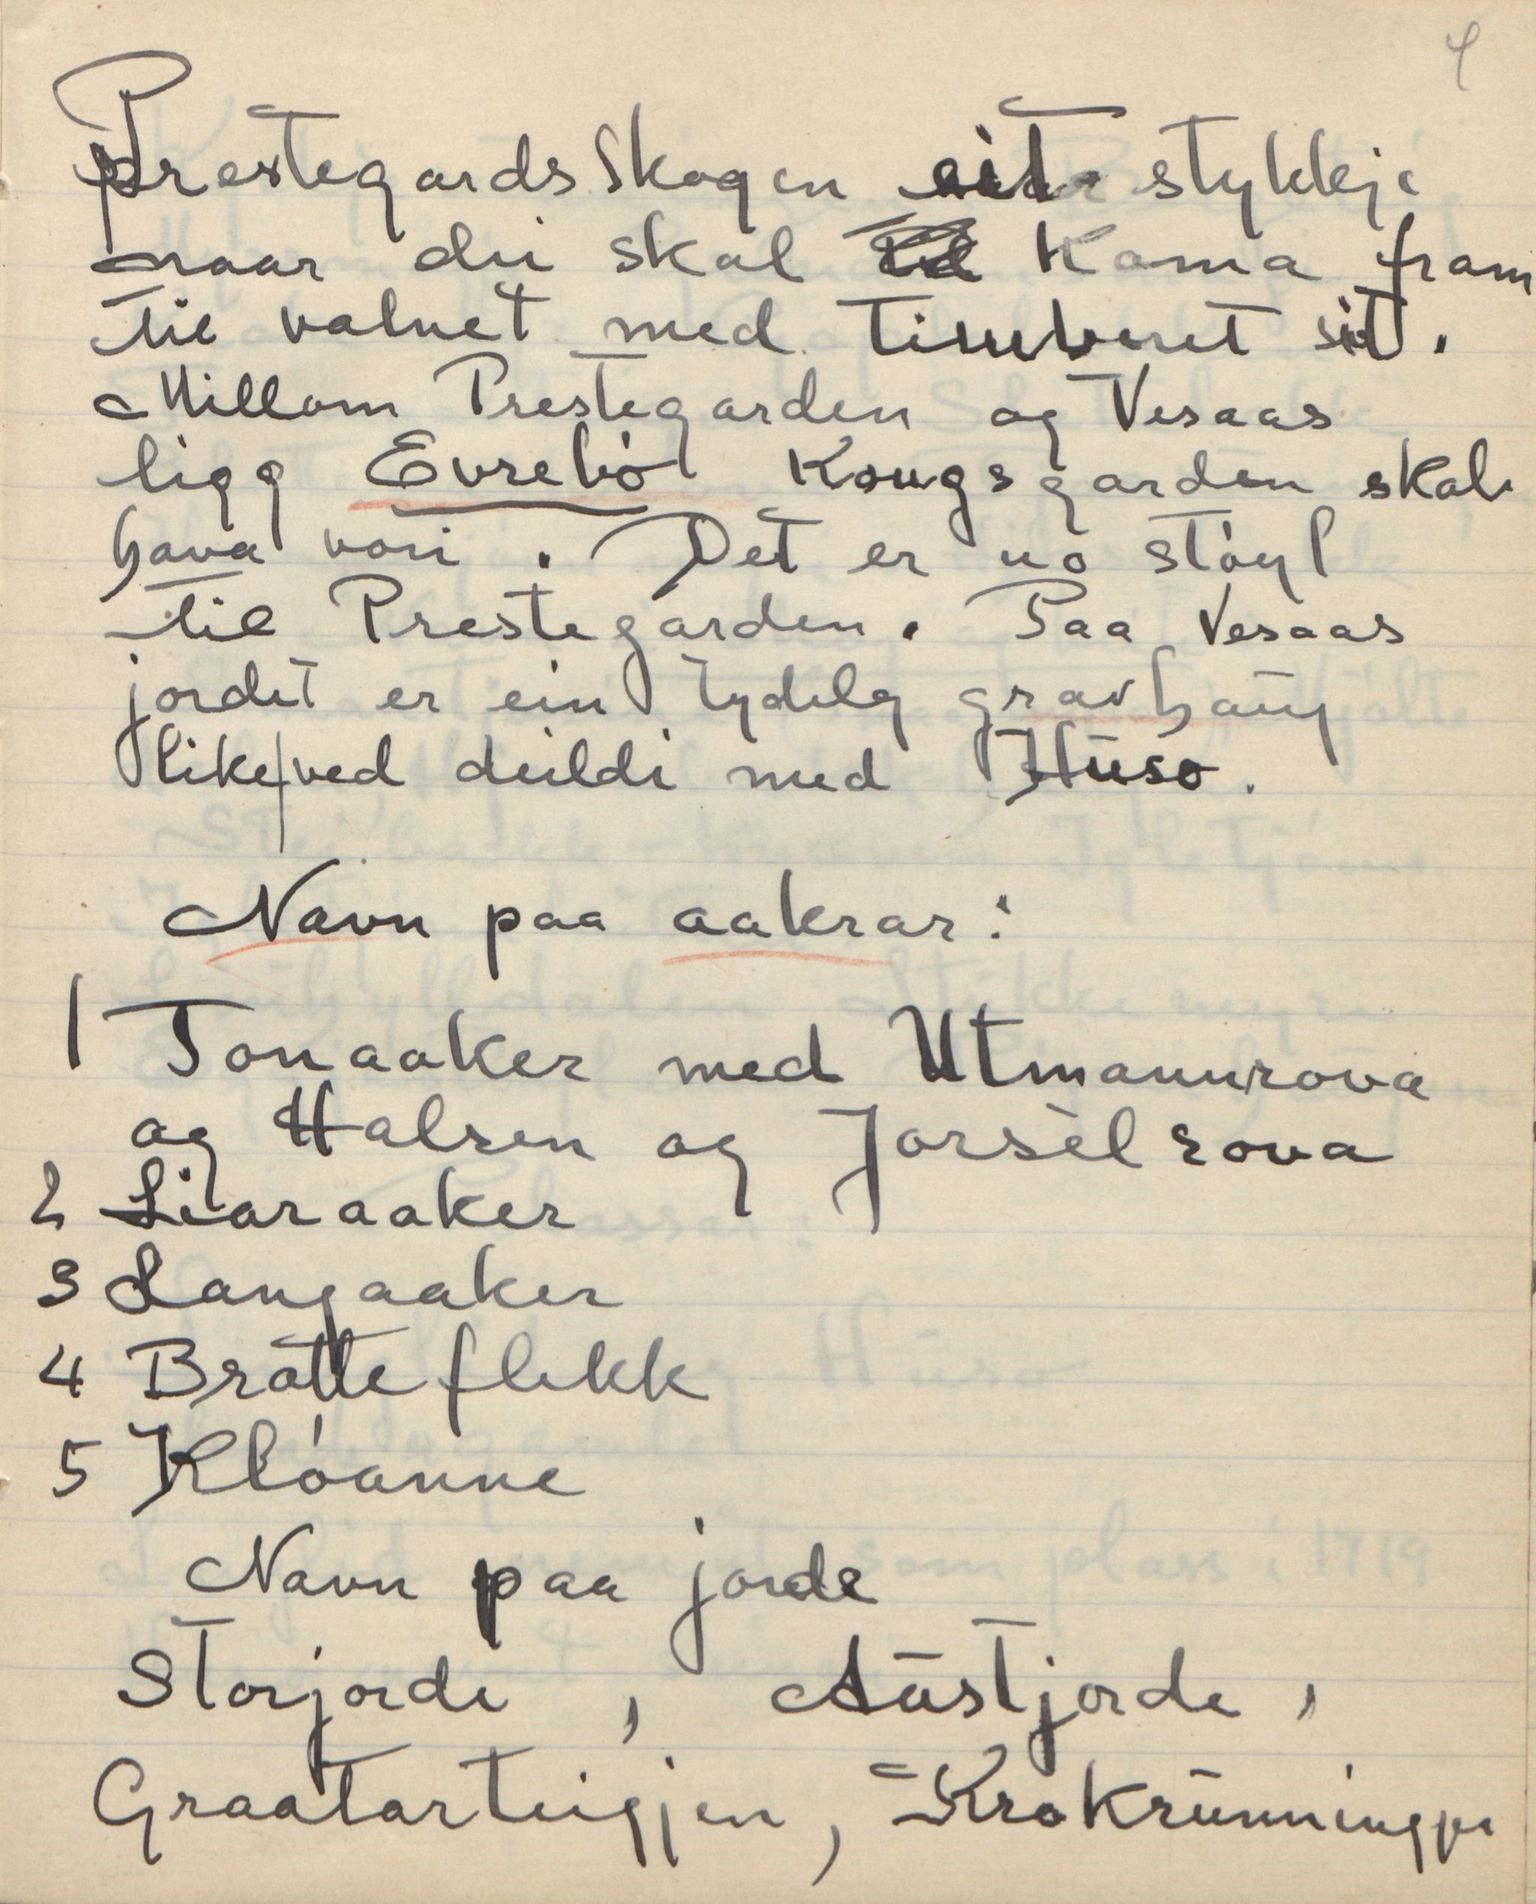 4
Prestegards Skogen eit stykkje
naar du skal koma fram
til vatnet med timberet sit.
Millom Prestegarden og Vesaas
ligg Evrebö Kongsgarden skal
hava vori. Det er no stöyl
til Prestegarden. Paa Vesaas
jordet er ein tydelg gravhaug
like ved deildi med Huso.
Navn paa aakrar:
1 Tonaaker med Utmannrova
og Halsen og Jorsèlrova
2 Liaraaker
3 Langaaker
4 Bratteflekk
5 Klóanne
Navn paa jorde
Storjorde, Austjorde,
Graatarteigjen, Krokrunningje